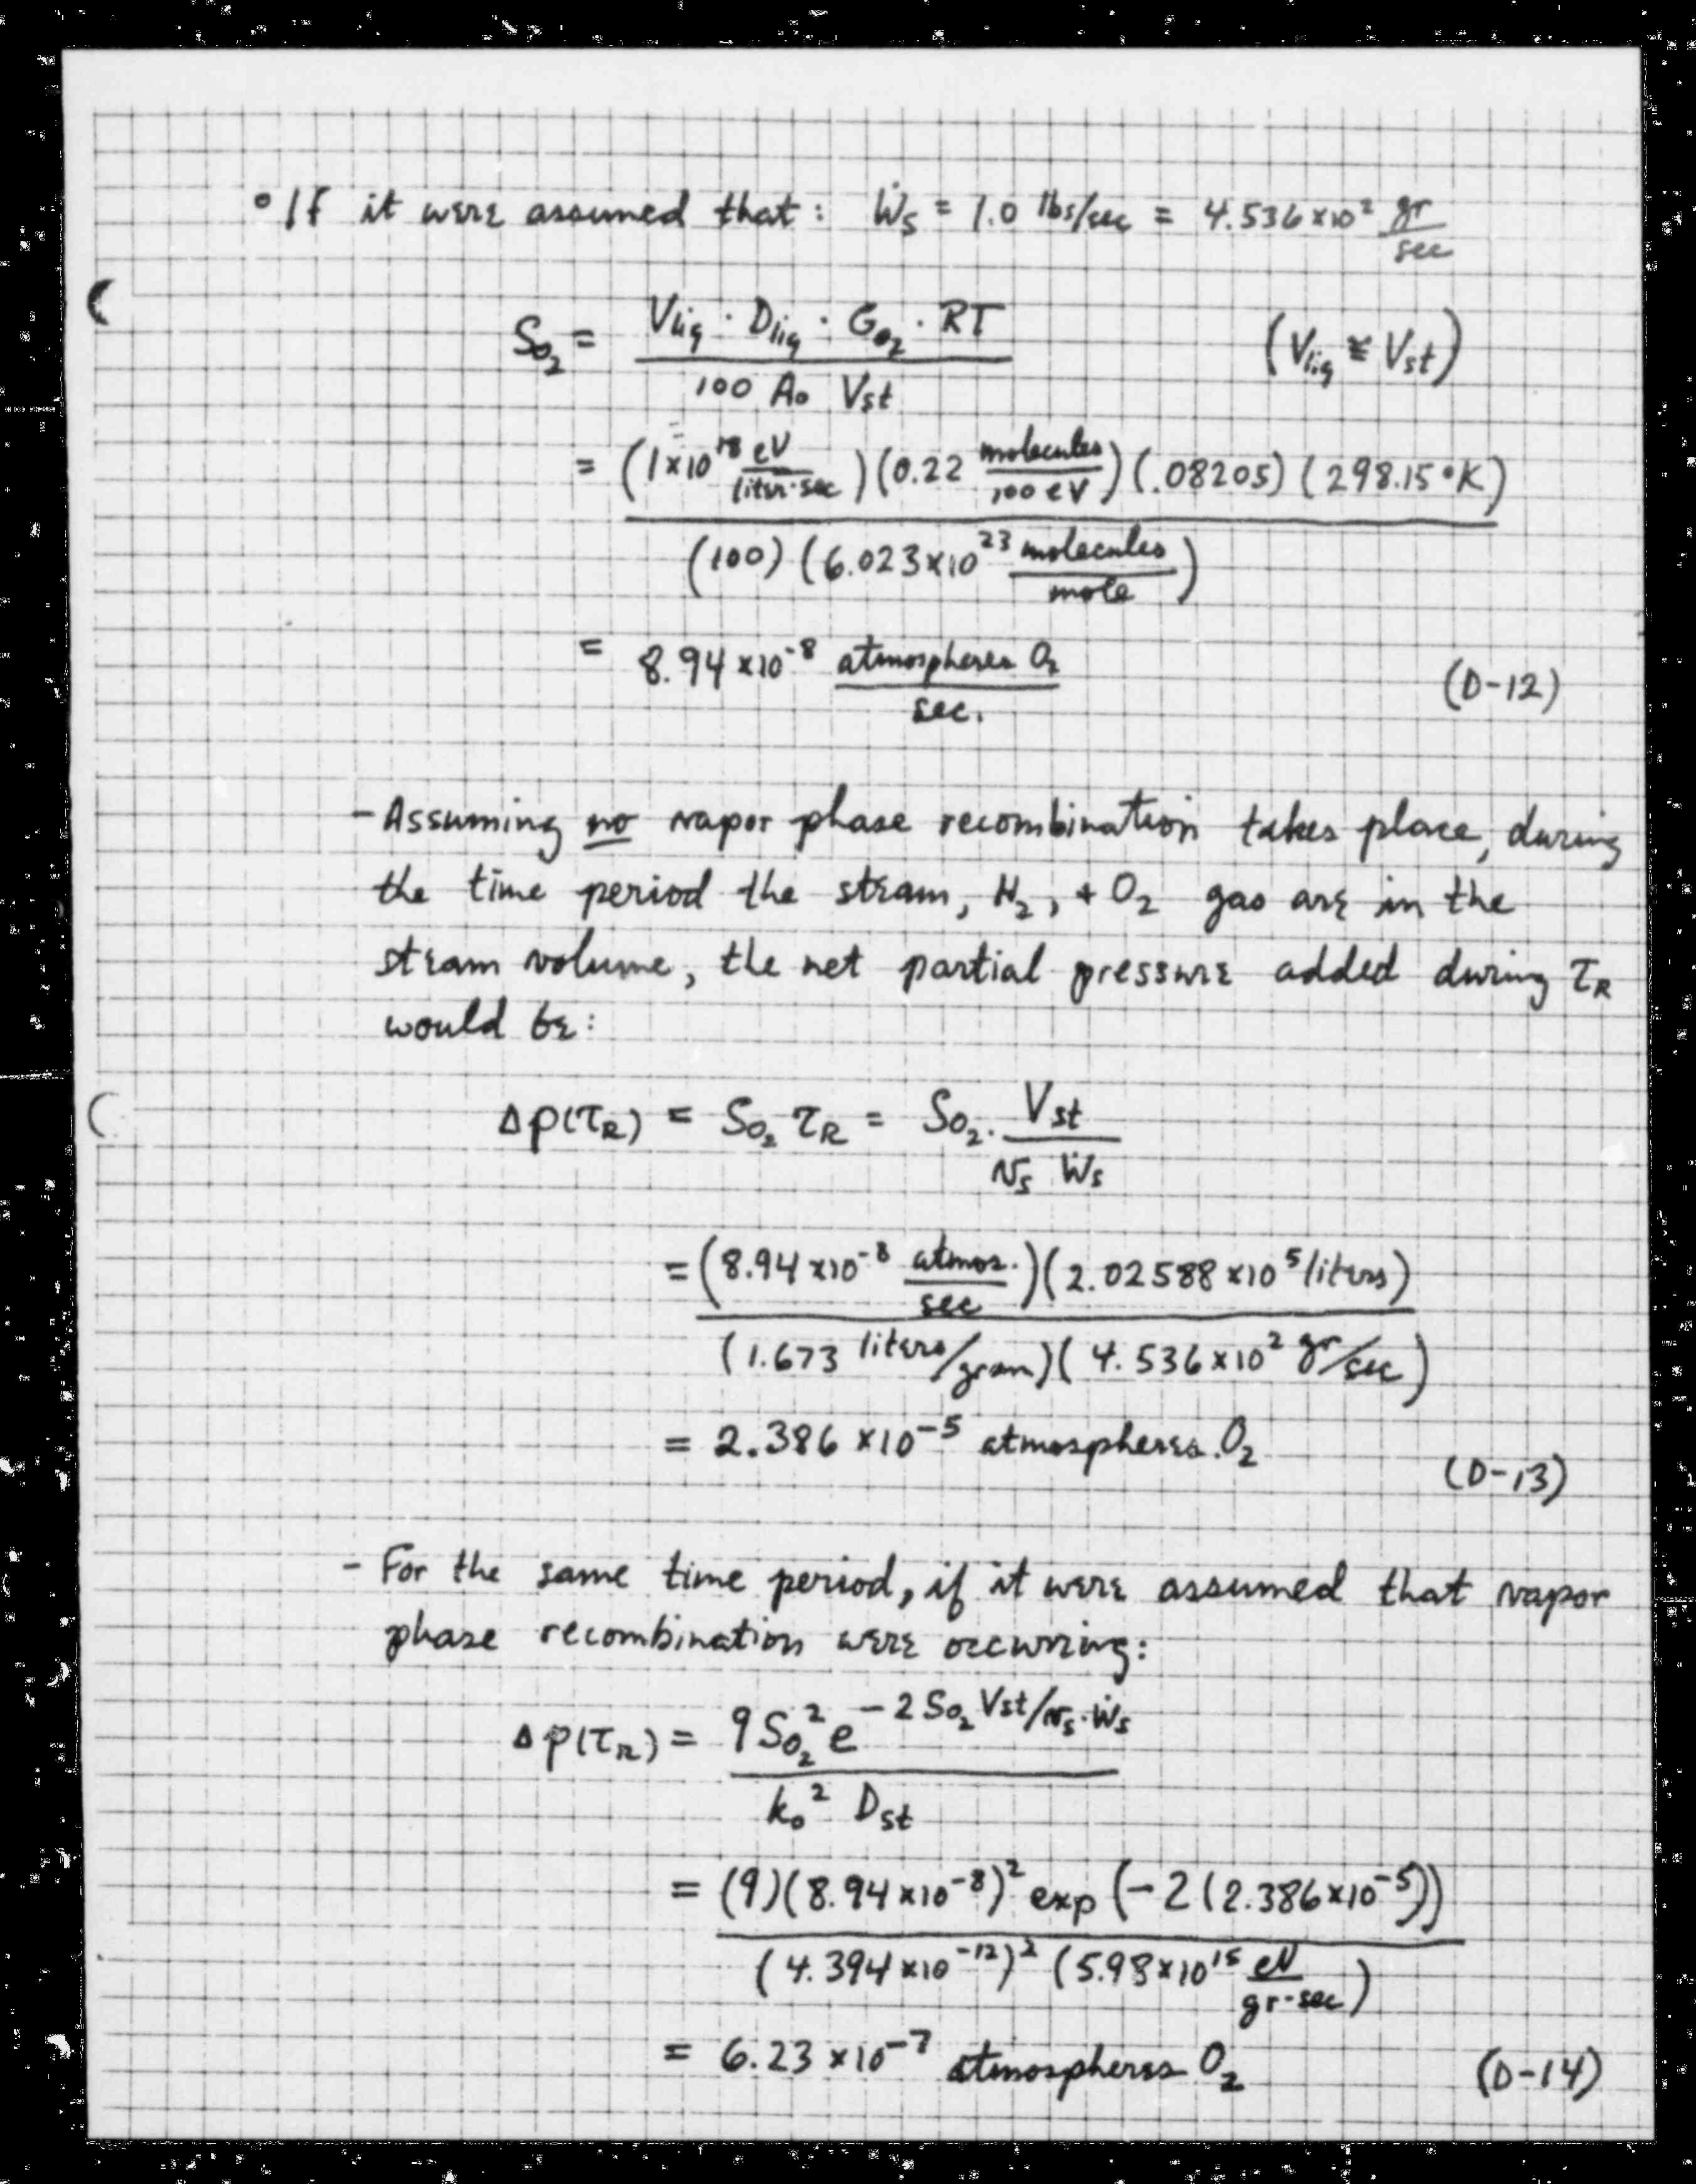 ° If it were assumed that: Ẇs = 1.0 lbs/sec = 4.536×10² gr/sec
So₂ = Vliq · Dliq · Go₂ · RT / 100 Ao Vst (Vliq ≅ Vst)
= (1×10¹⁸ eV/liter·sec)(0.22 molecules/100 eV)(.08205)(298.15°K)
(100)(6.023×10²³ molecules/mole)
= 8.94×10⁻⁸ atmospheres O₂/sec. (D-12)
- Assuming no vapor phase recombination takes place, during
the time period the steam, H₂, + O₂ gas are in the
steam volume, the net partial pressure added during τR
would be:
Δp(τR) = So₂ τR = So₂ · Vst / vs Ẇs
= (8.94×10⁻⁸ atmos./sec)(2.02588×10⁵ liters)
(1.673 liters/gram)(4.536×10² gr/sec)
= 2.386×10⁻⁵ atmospheres O₂ (D-13)
- For the same time period, if it were assumed that vapor
phase recombination were occurring:
Δp(τR) = 9So₂² e^(-2So₂Vst/vs·Ẇs)
ko² Dst
= (9)(8.94×10⁻⁸)² exp(-2(2.386×10⁻⁵))
(4.394×10⁻¹²)² (5.98×10¹⁵ eV/gr-sec)
= 6.23×10⁻⁷ atmospheres O₂ (D-14)